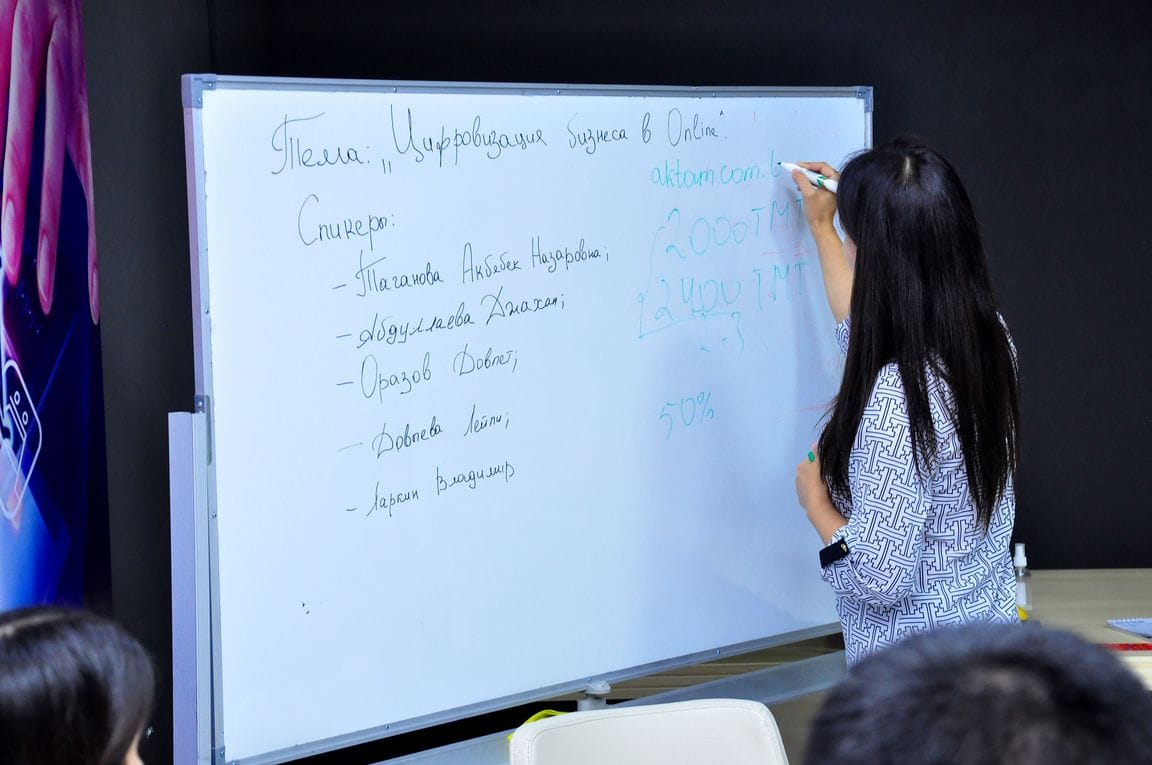 Тема: „Цифровизация бизнеса в Online".
Спикеры:
- Таганова Акбебек Назаровна;
- Абдуллаева Джахан;
- Оразов Довлет;
- Довлева Лейли;
- Ларкин Владимир
aktam.com.t
2000 TMT
2400 TMT
50%